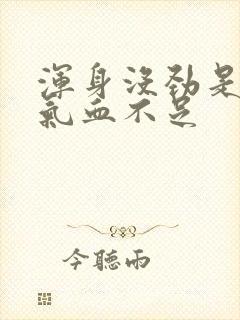 渾身沒勁是
氣血不足
今聽雨